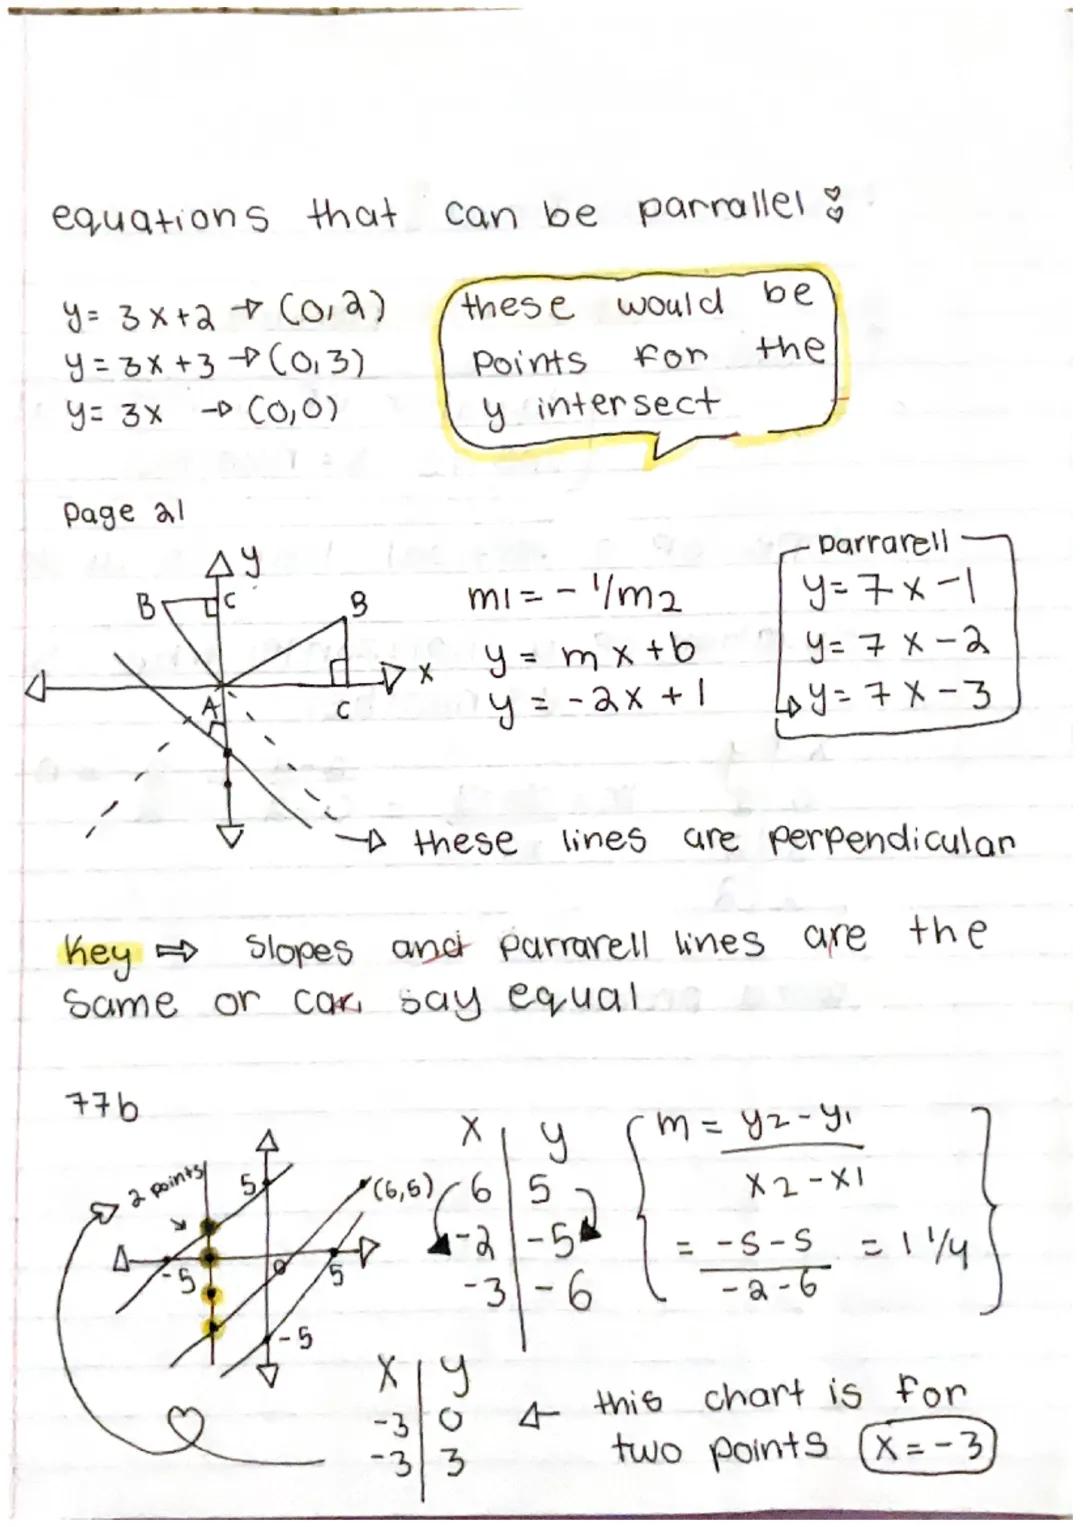 equations that can be parrallel
y= 3x+2 → (0,2)
y= 3x+3 → (0,3)
y= 3x → (0,0)
these would be
points for the
y intersect
page 21
y
B
C
B
x
A
C
m1 = - 1/m2
y = mx+b
y = -2x + 1
parrarell
y= 7x-1
y= 7x-2
→ y= 7x-3
→ these lines are perpendicular
Key ⇒ Slopes and parrarell lines are the
same or can say equal
77b
2 points
5
(6,6)
-5
0
5
-5
x | y
6 | 5
-2 | -5
-3 | -6
m = y2-y1
x2-x1
= -5-5 = 1 1/4
-2-6
x | y
-3 | 0
-3 | 3
← this chart is for
two points x=-3